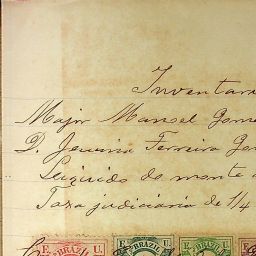 Inventar
Major Manoel Gome
D. Jesuina Ferreira Gon
Liquido do monte
Taxa judiciaria de 1/4
E. U. BRAZIL E. U. BRAZIL E. U. BRAZIL